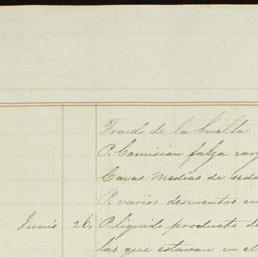 Traido de la buelta
P. Comision falza car
Caxas Medias de seda
P. varios descuentos en
Junio 26. P. liquido producto de
las que estavan en el